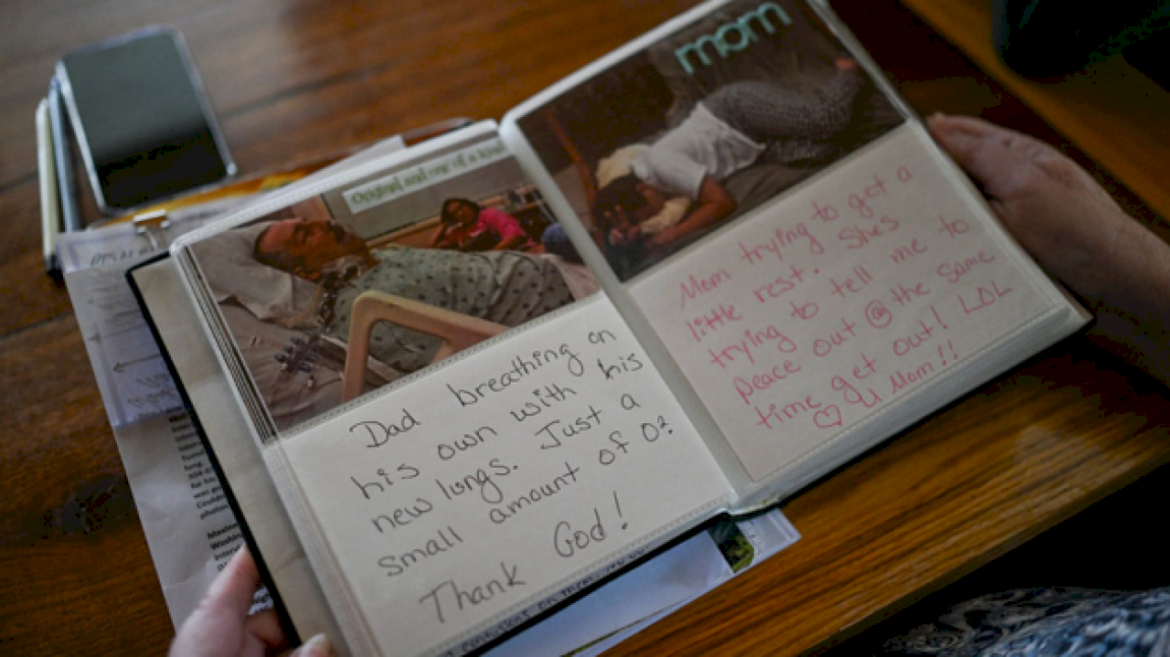 Original and one of a kind
Dad breathing on
his own with his
new lungs. Just a
small amount of O2.
Thank God!
mom
Mom trying to get a
little rest. She's
trying to tell me to
peace out @ the same
time get out! LOL
♡ U Mom!!